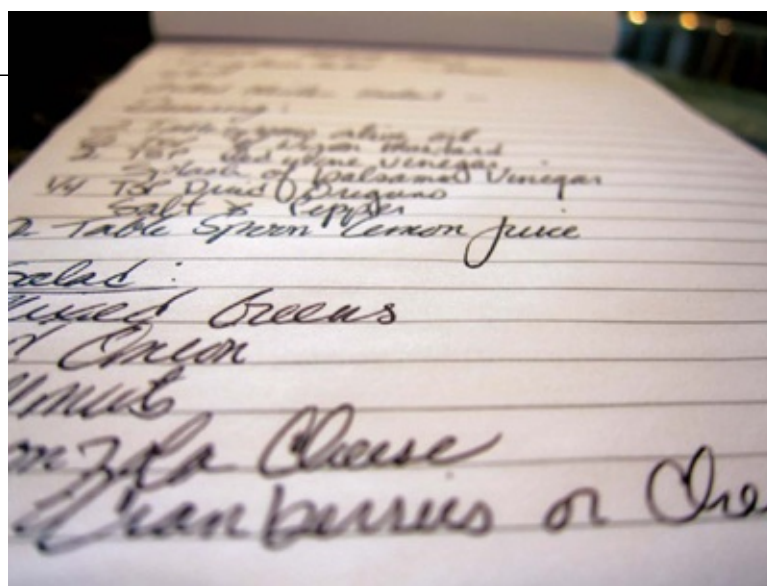 Dressing:
Table Spoons olive oil
TSP Dijon Mustard
2 TSP Red Wine Vinegar
Splash of balsamic Vinegar
1/4 TSP Dried Oregano
Salt & Pepper
2 Table Spoon lemon juice
Salad:
Mixed Greens
Onion
lnuts
onzola Cheese
Cranberries or Che